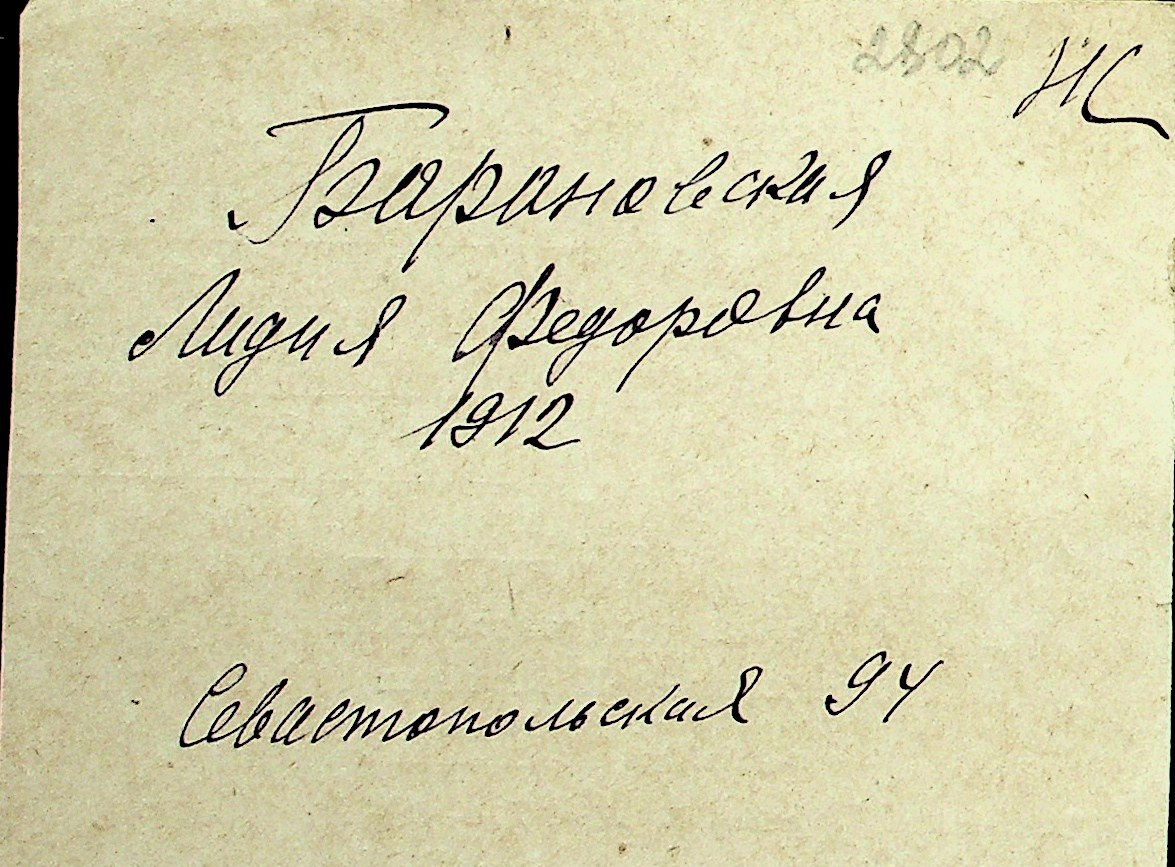 2802 НС
Барановская
Лидия Федоровна
1912
Севастопольская 94